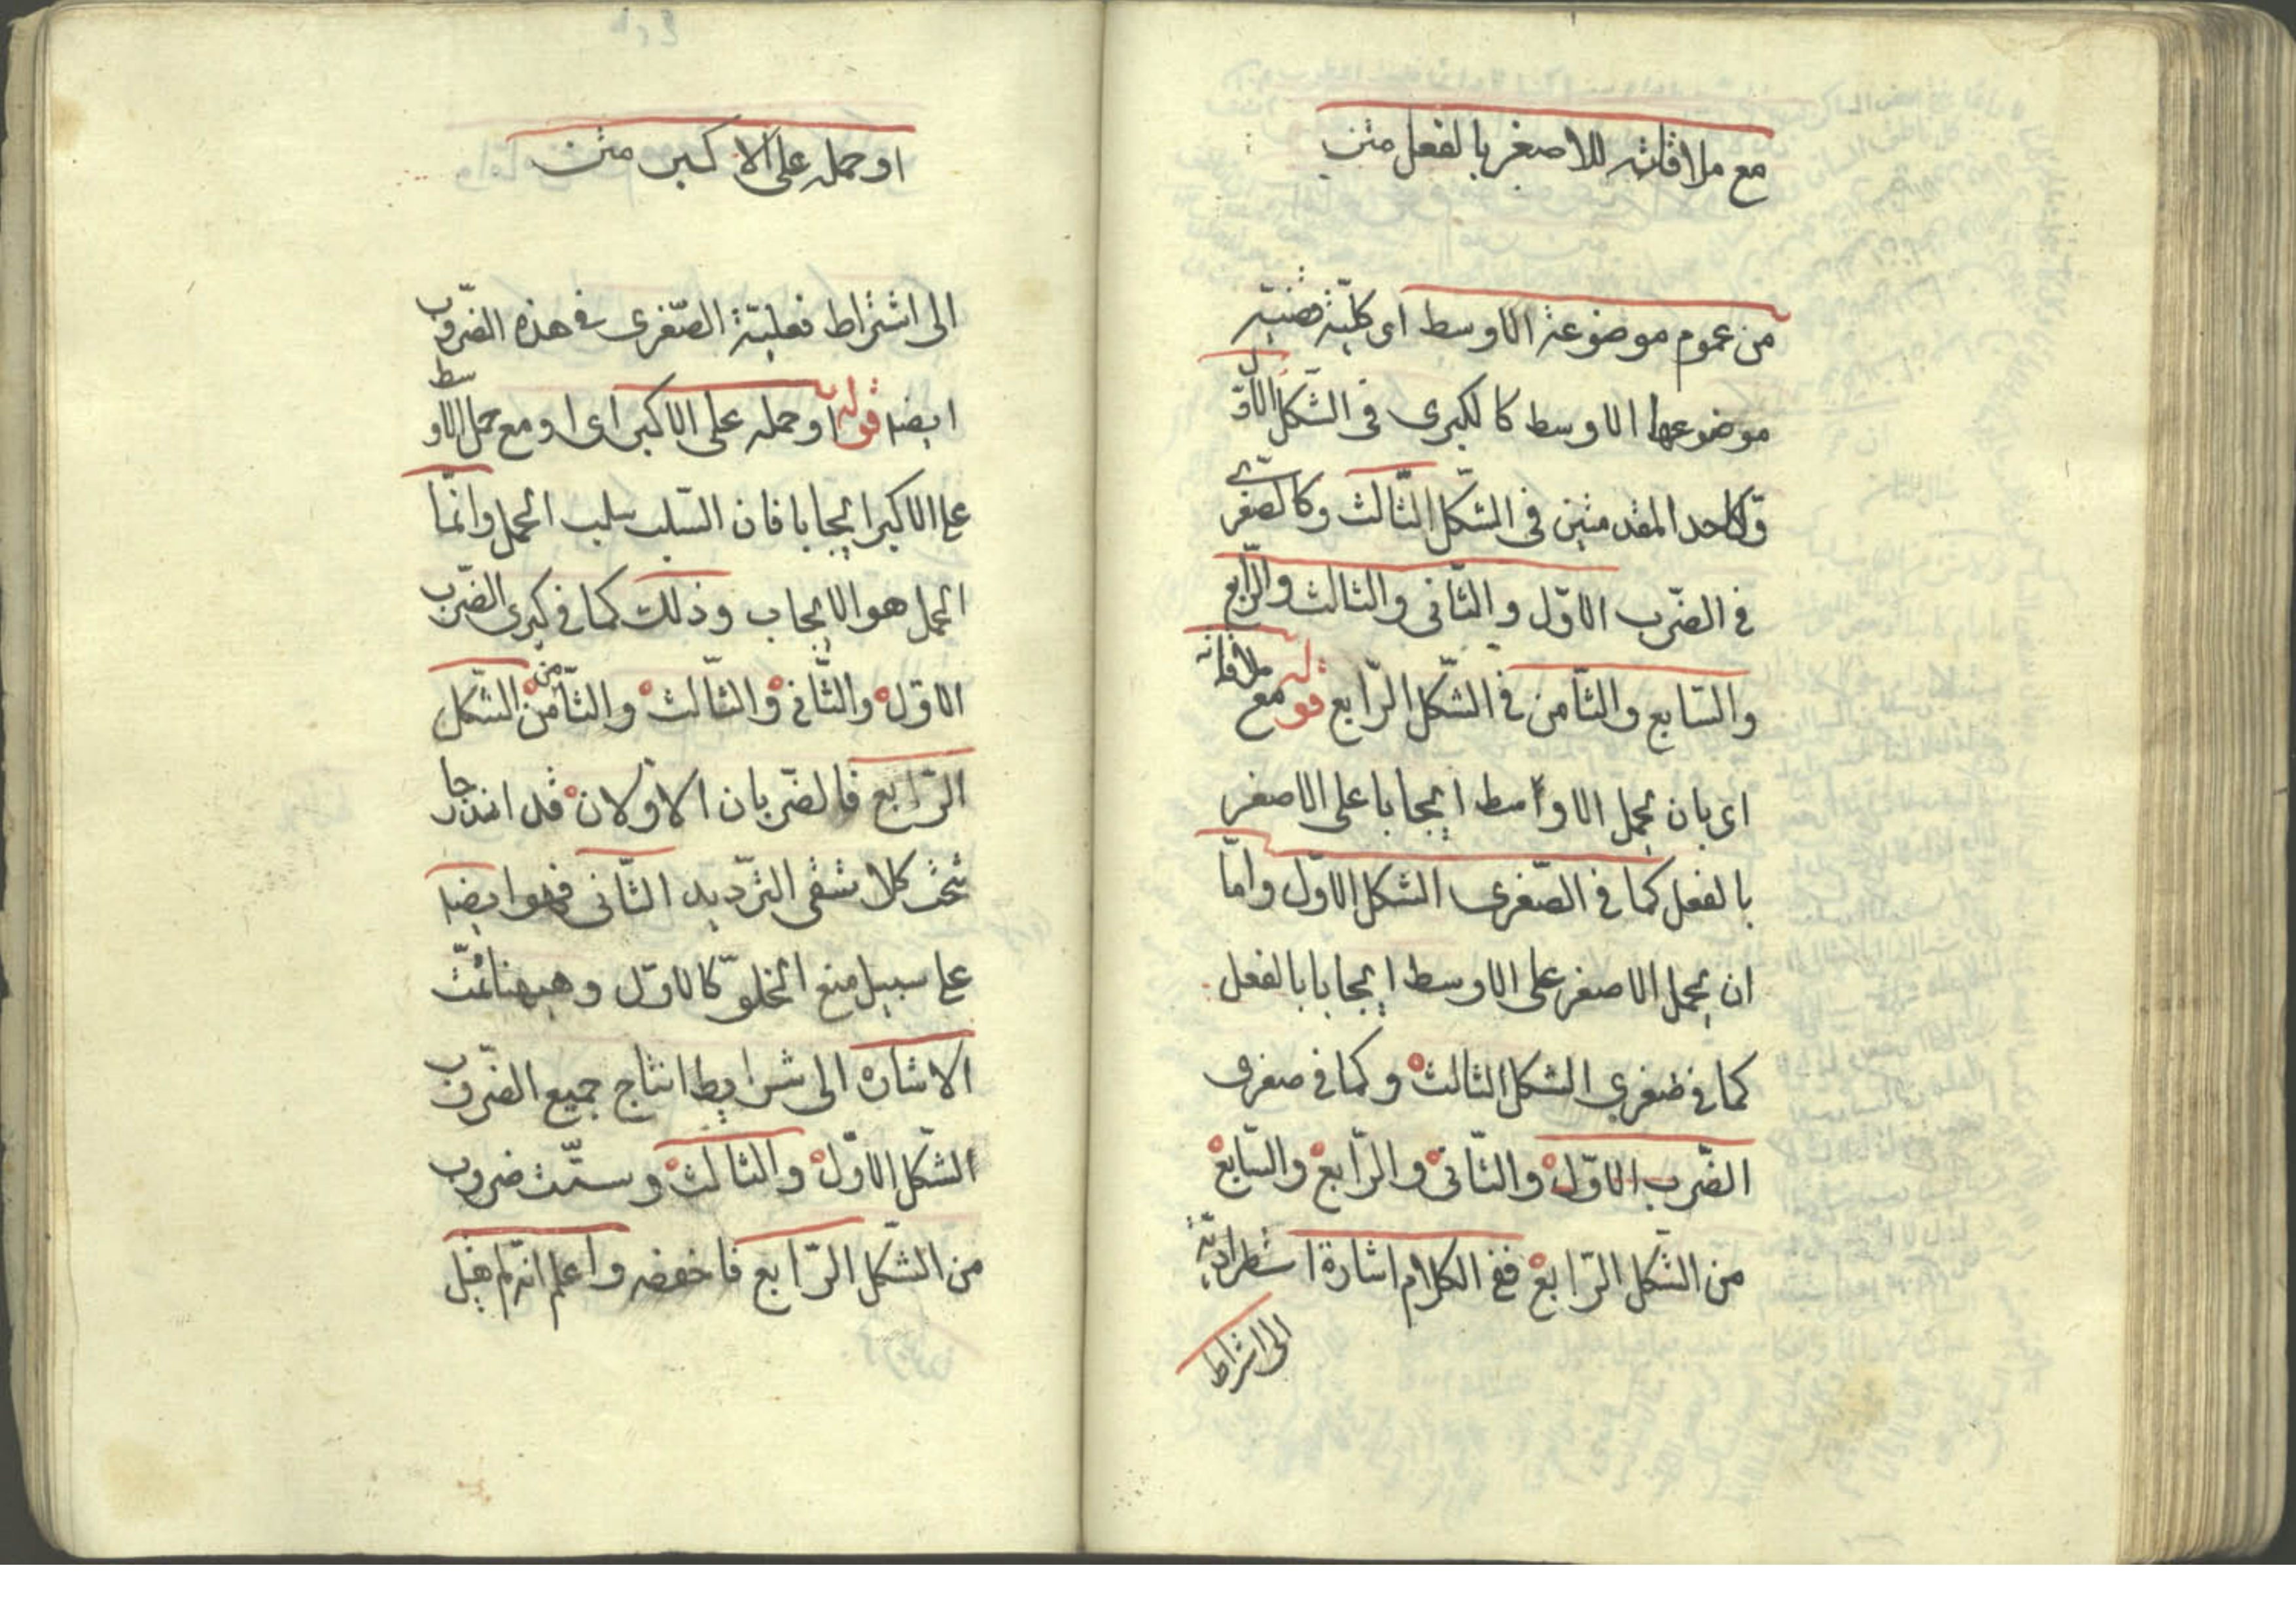 مع ملاقاته للاصغر بالفعل متن
من عموم موضوعية الاوسط اى كلية قضية
موضوعها الاوسط كالكبرى فى الشكل الاول
وكاحد المقدمتين فى الشكل الثالث وكالصغرى
فى الضرب الاوّل والثّانى والثالث والرّابع
والسّابع والثّامن فى الشّكل الرّابع قوله مع ملاقاته
اى بان يحمل الاوسط ايجابا على الاصغر
بالفعل كما فى الصّغرى الشكل الاوّل وامّا
ان يحمل الاصغر على الاوسط ايجابا بالفعل
كما فى صغرى الشكل الثالث وكما فى صغرى
الضّرب الاوّل والثّانى والرّابع والسّابع
من الشّكل الرّابع ففى الكلام اشارة استطرادية
الى اشتراط
او حمله على الاكبر متن
الى اشتراط فعليّة الصّغرى فى هذه الضّروب
ايضا قوله او حمله على الاكبر اى او مع حمل الاوسط
على الاكبر ايجابا فان السّلب سلب الحمل وانّما
الحمل هو الايجاب وذلك كما فى كبرى الضّرب
الاوّل والثّانى والثّالث والثّامن من الشّكل
الرّابع فالضّربان الاوّلان قد اندرجا
تحت كلا شقى التّرديد الثّانى فهو ايضا
على سبيل منع الخلوّ كالاوّل وهيهنا تمّت
الاشارة الى شرايط انتاج جميع الضّروب
الشّكل الاوّل والثالث وستّت ضروب
من الشّكل الرّابع فاحفضه واعلم انه لم يقل